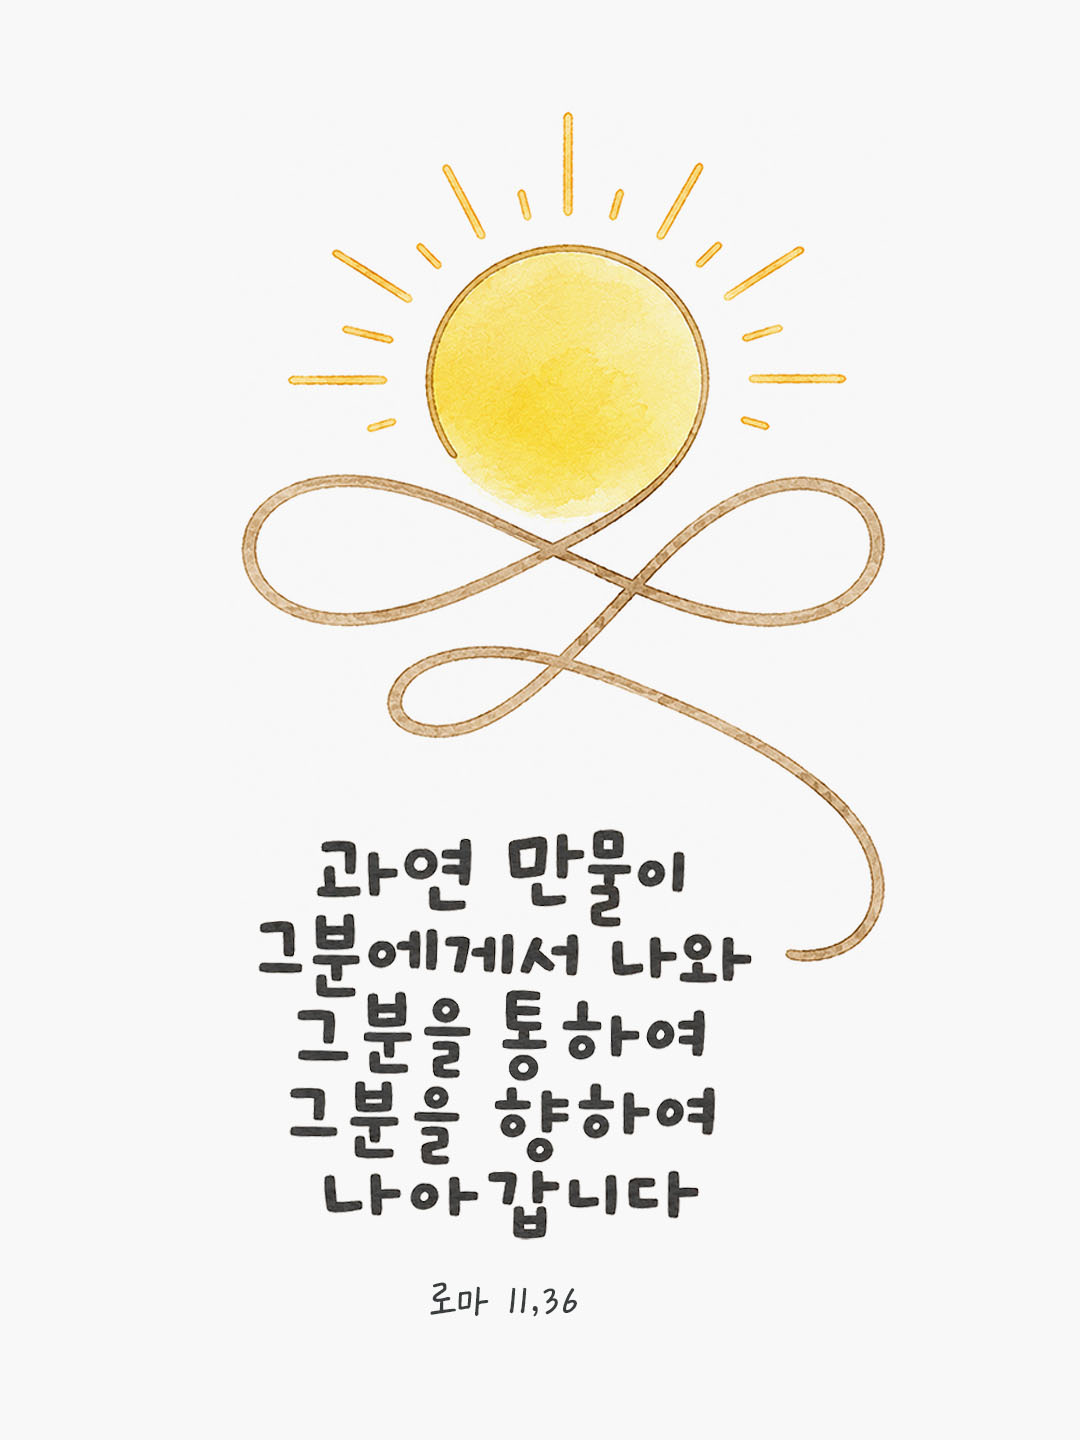 과연 만물이
그분에게서 나와
그분을 통하여
그분을 향하여
나아갑니다
로마 11,36